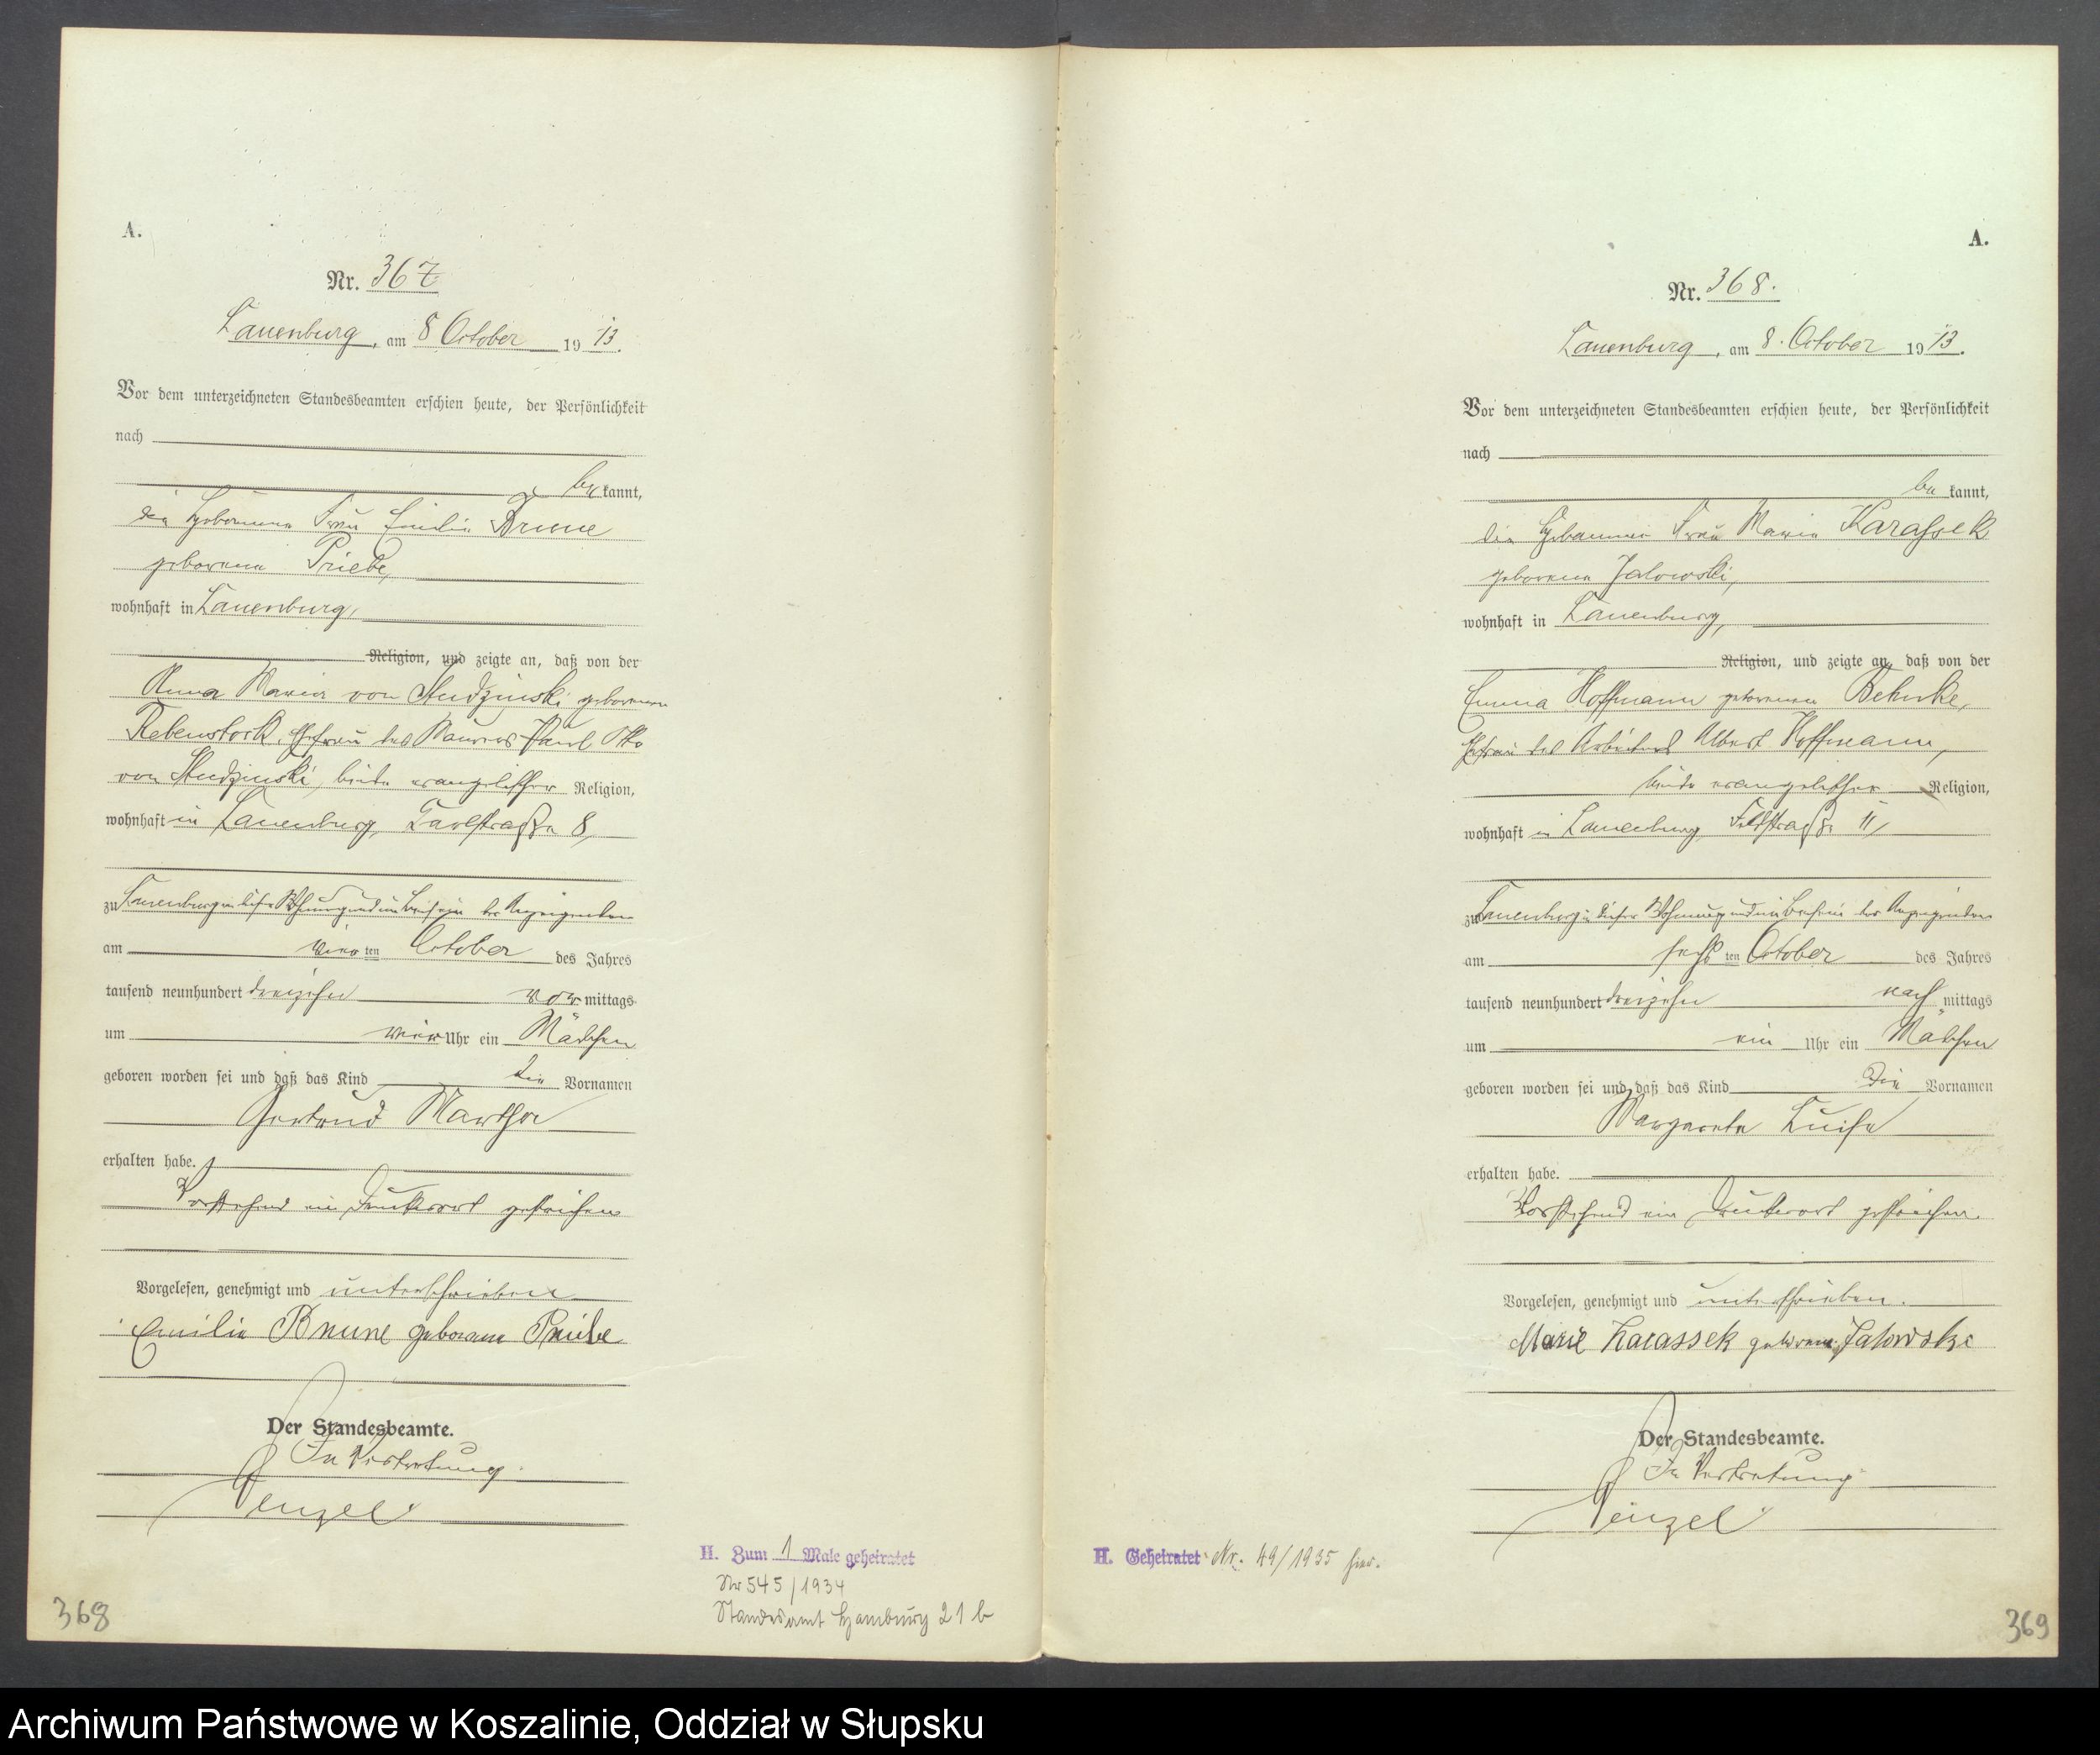 A.
Nr. 367
Lauenburg, am 8 October 1913.
Vor dem unterzeichneten Standesbeamten erschien heute, der Persönlichkeit
nach
be kannt,
die Hebamme Frau Emilie Brune
geborene Priebe,
wohnhaft in Lauenburg,
Religion, und zeigte an, daß von der
Anna Maria von Studzinski geborenen
Rebenstock, Ehefrau des Maurers Paul Otto
von Studzinski, beide evangelischer Religion,
wohnhaft in Lauenburg, Carlstraße 8,
zu Lauenburg in dieser Wohnung und in Beisein der Anzeigenden
am vier ten October des Jahres
tausend neunhundert dreizehn vor mittags
um vier Uhr ein Mädchen
geboren worden sei und daß das Kind die Vornamen
Gertrud Martha
erhalten habe.
Vorstehend ein Druckwort gestrichen
Vorgelesen, genehmigt und unterschrieben
Emilie Brune geborene Priebe
Der Standesbeamte.
In Vertretung.
Wenzel
H. Zum 1 Male geheiratet
Nr 545/1934
Standesamt Hamburg 21 b
368
A.
Nr. 368.
Lauenburg, am 8. October 1913.
Vor dem unterzeichneten Standesbeamten erschien heute, der Persönlichkeit
nach
be kannt,
die Hebamme Frau Marie Karassek
geborene Jalowski,
wohnhaft in Lauenburg,
Religion, und zeigte an, daß von der
Emma Hoffmann geborenen Behnke,
Ehefrau des Arbeiters Albert Hoffmann,
beide evangelischer Religion,
wohnhaft in Lauenburg, Feldstraße 11,
zu Lauenburg in dieser Wohnung und in Beisein der Anzeigenden
am sechs ten October des Jahres
tausend neunhundert dreizehn nach mittags
um ein Uhr ein Mädchen
geboren worden sei und daß das Kind die Vornamen
Margarete Luise
erhalten habe.
Vorstehend ein Druckwort gestrichen.
Vorgelesen, genehmigt und unterschrieben.
Marie Karassek geborene Jalowski
Der Standesbeamte.
In Vertretung
Wenzel
H. Geheiratet Nr. 49/1935 hier.
369
Archiwum Państwowe w Koszalinie, Oddział w Słupsku